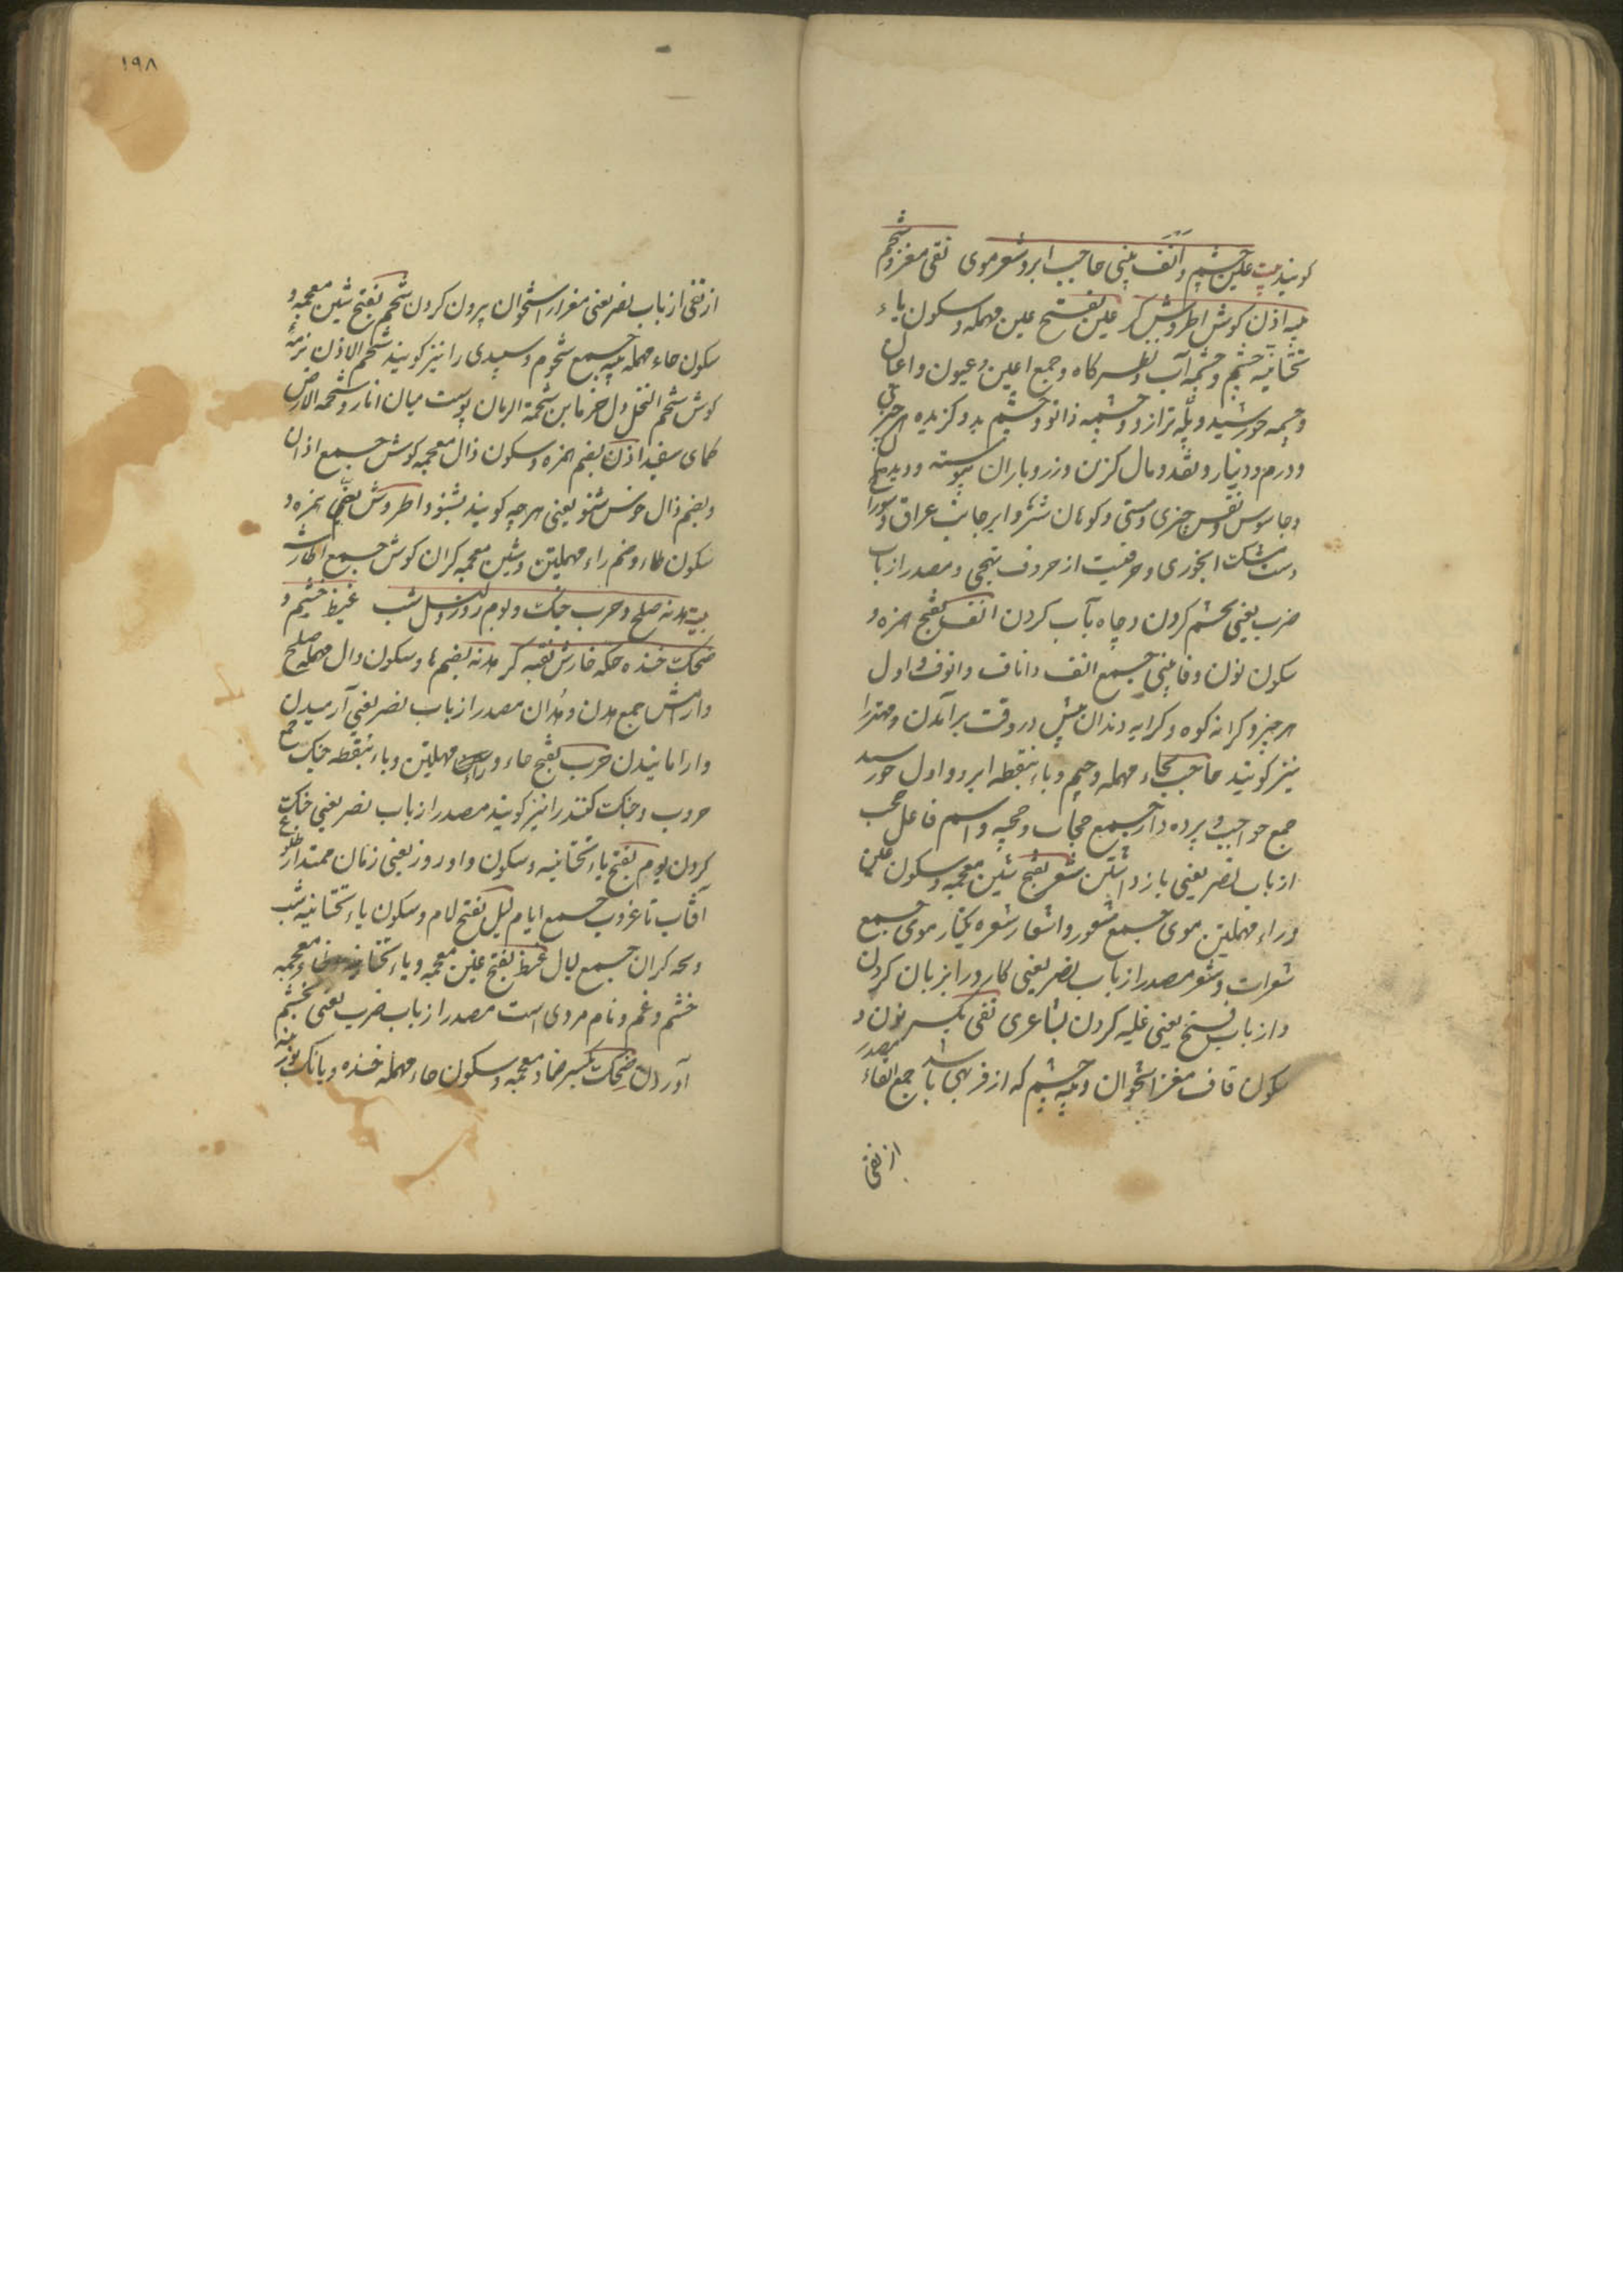 کویند بیت عین چشم و اَنْف بینی حاجب ابرو شعر موی نقی مغز و شحم
پیه اذن کوش اطروش کر عین بفتح عین مهمله و سکون یاء
تحتانیه چشم و چشمه آب و نظرکاه و جمع اعین و عیون و اعیان
و چشمه خورشید و پلّه ترازو و چشمه زانو و چشم بد و کزیده هر چیزی
و درم و دینار و نقد و مال کزین و زر و باران پیوسته و دیدبان
و جاسوس و نفس چیزی و کوهان شتر و ابر جانب عراق و سوراخ
مشک ابخوری و حرفیست از حروف تهجی و مصدر از باب
ضرب یعنی بچشم کردن و چاه بآب کردن انف بفتح همزه و
سکون نون و فا بینی جمع انف و اناف و انوف و اول
هر چیز و کرانه کوه و کرایه دندان پیش در وقت برآمدن و مهتر را
نیز کویند حاجب بحاء مهمله و جیم و باء بنقطه ابرو و اول خورشید
جمع حواجب و پرده دار جمع حجاب و حجبه و اسم فاعل حجب
از باب نصر یعنی باز داشتن شعر بفتح شین معجمه و سکون عین
و راء مهملتین موی جمع شعور و اشعار شعره یکتار موی جمع
شعرات و شعر مصدر از باب نصر یعنی کارد را بزبان کردن
و از باب فتح یعنی غلبه کردن بشاعری نقی بکسر نون و
سکون قاف مغز استخوان و پیه چشم که از فربهی باشد جمع انقاء مصدر
از نقی
۱۹۸
از نقی از باب نصر یعنی مغز از استخوان بیرون کردن شحم بفتح شین معجمه و
سکون حاء مهمله پیه جمع شحوم و سپیدی را نیز کویند شحم الاذن نرمه
کوش شحم النخل دل خرما بن شحمة الرمان پوست میان انار و شحمة الارض
کمای سفید اذن بضم همزه و سکون ذال معجمه کوش جمع اذان
و بضم ذال خوش شنو یعنی هر چه کویند بشنود اطروش بضم همزه و
سکون طاء و ضم راء مهملتین و شین معجمه کران کوش جمع
بیت هدنه صلح و حرب جنک و یوم روز و لیل شب غیظ خشم و
ضحک خنده حکه خارش نقبه کر هدنه بضم ها و سکون دال مهمله صلح
و ارامش جمع هدن و هدان مصدر از باب نصر یعنی آرمیدن
و ارامانیدن حرب بفتح حاء و راء مهملتین و باء بنقطه جنک جمع
حروب و جنک کننده را نیز کویند مصدر از باب نصر یعنی جنک
کردن یوم بفتح یاء تحتانیه و سکون واو روز یعنی زمان ممتد از طلوع
آفتاب تا غروب جمع ایام لیل بفتح لام و سکون یاء تحتانیه شب
و بچه کران جمع لیال غیظ بفتح غین معجمه و یاء تحتانیه و ظاء معجمه
خشم و غم و نام مردی است مصدر از باب ضرب یعنی بخشم
آوردن ضحک بکسر ضاد معجمه و سکون حاء مهمله خنده و بانک بوزینه